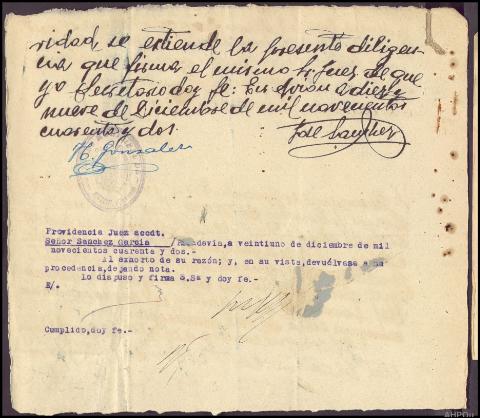 ridad, se extiende la presente diligen
cia que firma el mismo Sr Juez de que
yo Secretario doy fe: En a diez y
nueve de Diciembre de mil novecientos
cuarenta y dos.
H. Gonzalez
José Sanchez
Providencia Juez acodt.
Señor Sanchez Garcia / Ribadavia,a veintiuno de diciembre de mil
novecientos cuarenta y dos.-
Al exhorto de su razón; y, en su vista, devuélvase a su
procedencia,dejando nota.
Lo dispuso y firma S.Sª y doy fe.-
E/.
Cumplido,doy fe.-
AHPOu